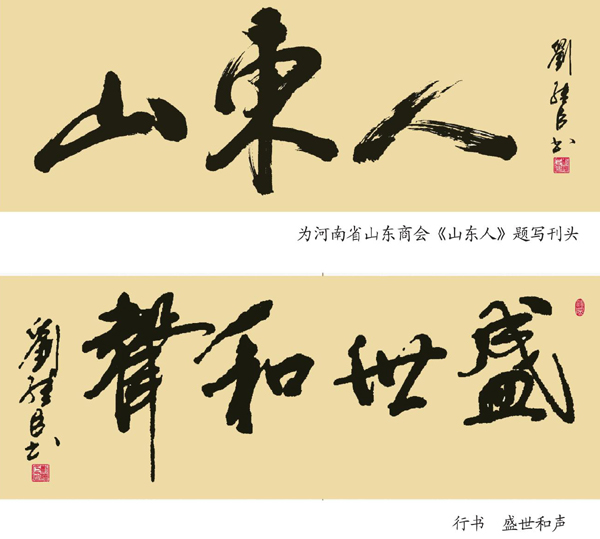 山東人
劉 书
为河南省山东商会《山东人》题写刊头
盛世和聲
劉 书
行书 盛世和声